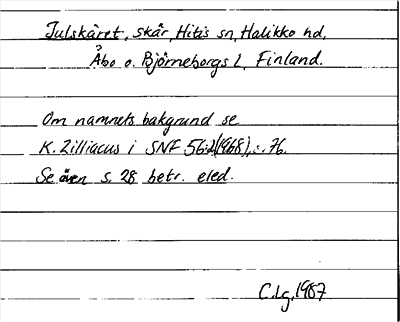 Julskäret, skär, Hitis sn, Halikko hd,
Åbo o. Björneborgs l, Finland.
Om namnets bakgrund se
K. Zilliacus i SNF 56:2 (1968), s. 76.
Se även s. 28 betr. eled.
C.Lg. 1987